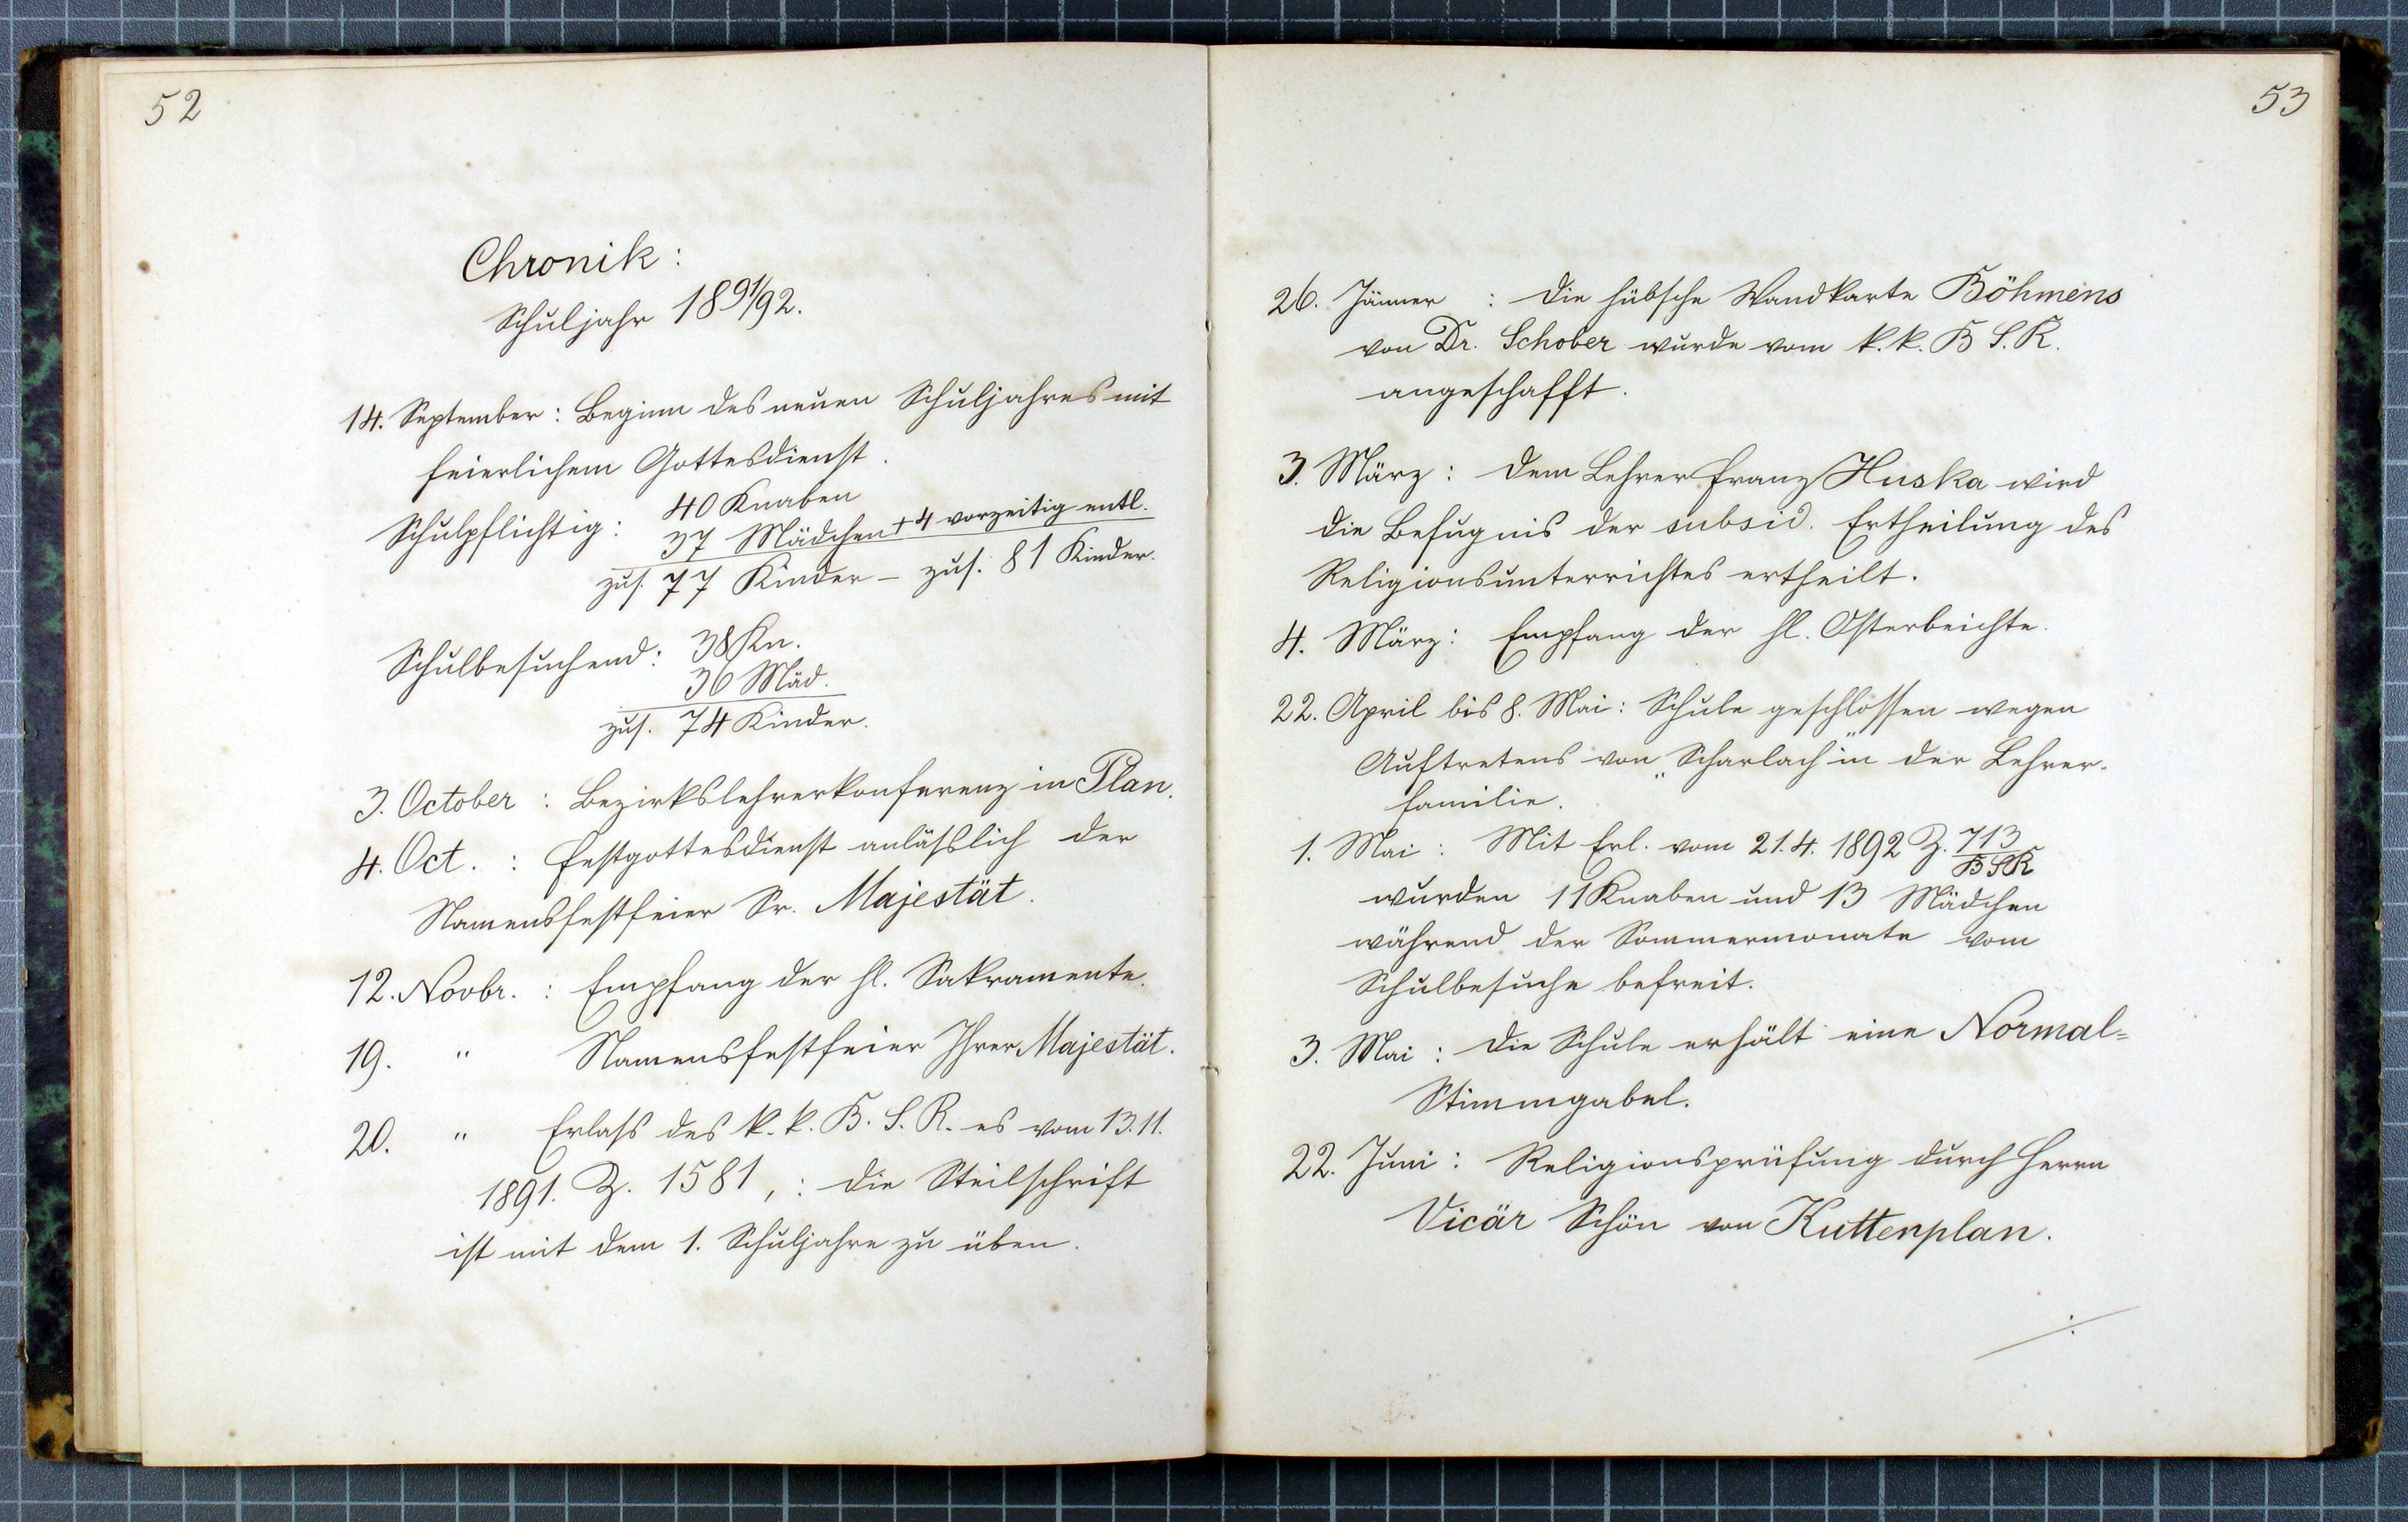 52
Chronik:
Schuljahr 1891/92.
14. September: Beginn des neuen Schuljahres mit
feierlichem Gottesdienst.
Schulpflichtig: 40 Knaben
37 Mädchen + 4 vorzeitig entl.
zus. 77 Kinder – zus. 81 Kinder.
Schulbesuchend: 38 Kn.
36 Mäd.
zus. 74 Kinder.
3. October: Bezirkslehrerkonferenz in Plan.
4. Oct.: Festgottesdienst anläßlich der
Namensfestfeier Sr. Majestät.
12. Novbr.: Empfang der hl. Sakramente.
19. " Namensfestfeier Ihrer Majestät.
20. " Erlaß des k. k. B. S. R. es vom 13.11.
1891. Z. 1581,: die Steilschrift
ist mit dem 1. Schuljahre zu üben.
53
26. Jänner: die hübsche Wandkarte Böhmens
von Dr. Schober wurde vom k. k. B S. R.
angeschafft.
3. März: dem Lehrer Franz Huska wird
die Befugnis der subsid. Ertheilung des
Religionsunterrichtes ertheilt.
4. März: Empfang der hl. Osterbeichte.
22. April bis 8. Mai: Schule geschlossen wegen
Auftretens von „Scharlach" in der Lehrer-
familie.
1. Mai: Mit Erl. vom 21.4. 1892 Z. 713
BSR
wurden 11 Knaben und 13 Mädchen
während der Sommermonate vom
Schulbesuche befreit.
3. Mai: die Schule erhält eine Normal=
Stimmgabel.
22. Juni: Religionsprüfung durch Herrn
Vicär Schön von Kuttenplan.